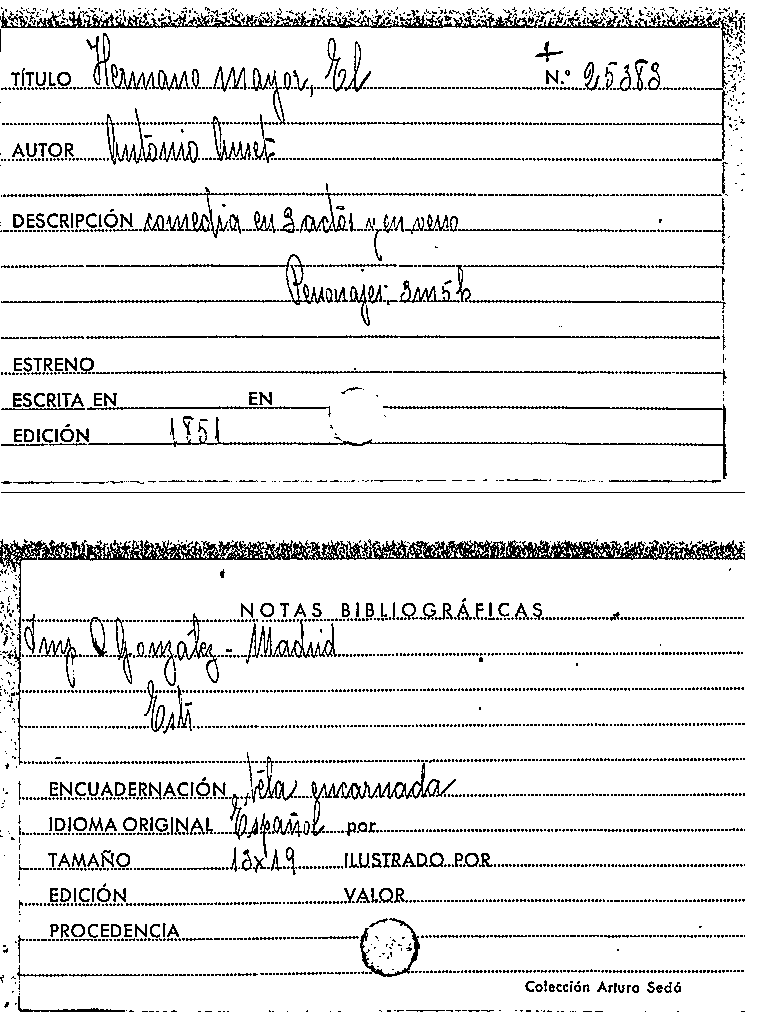 TÍTULO Hermano mayor, El + N.º 25383
AUTOR Antonio Auset
DESCRIPCIÓN comedia en 3 actos y en verso
Personajes: 3m 5h
ESTRENO
ESCRITA EN EN
EDICIÓN 1851
NOTAS BIBLIOGRÁFICAS
Imp González - Madrid
ENCUADERNACIÓN tela encarnada
IDIOMA ORIGINAL Español por
TAMAÑO 13x19 ILUSTRADO POR
EDICIÓN VALOR
PROCEDENCIA
Colección Arturo Sedó